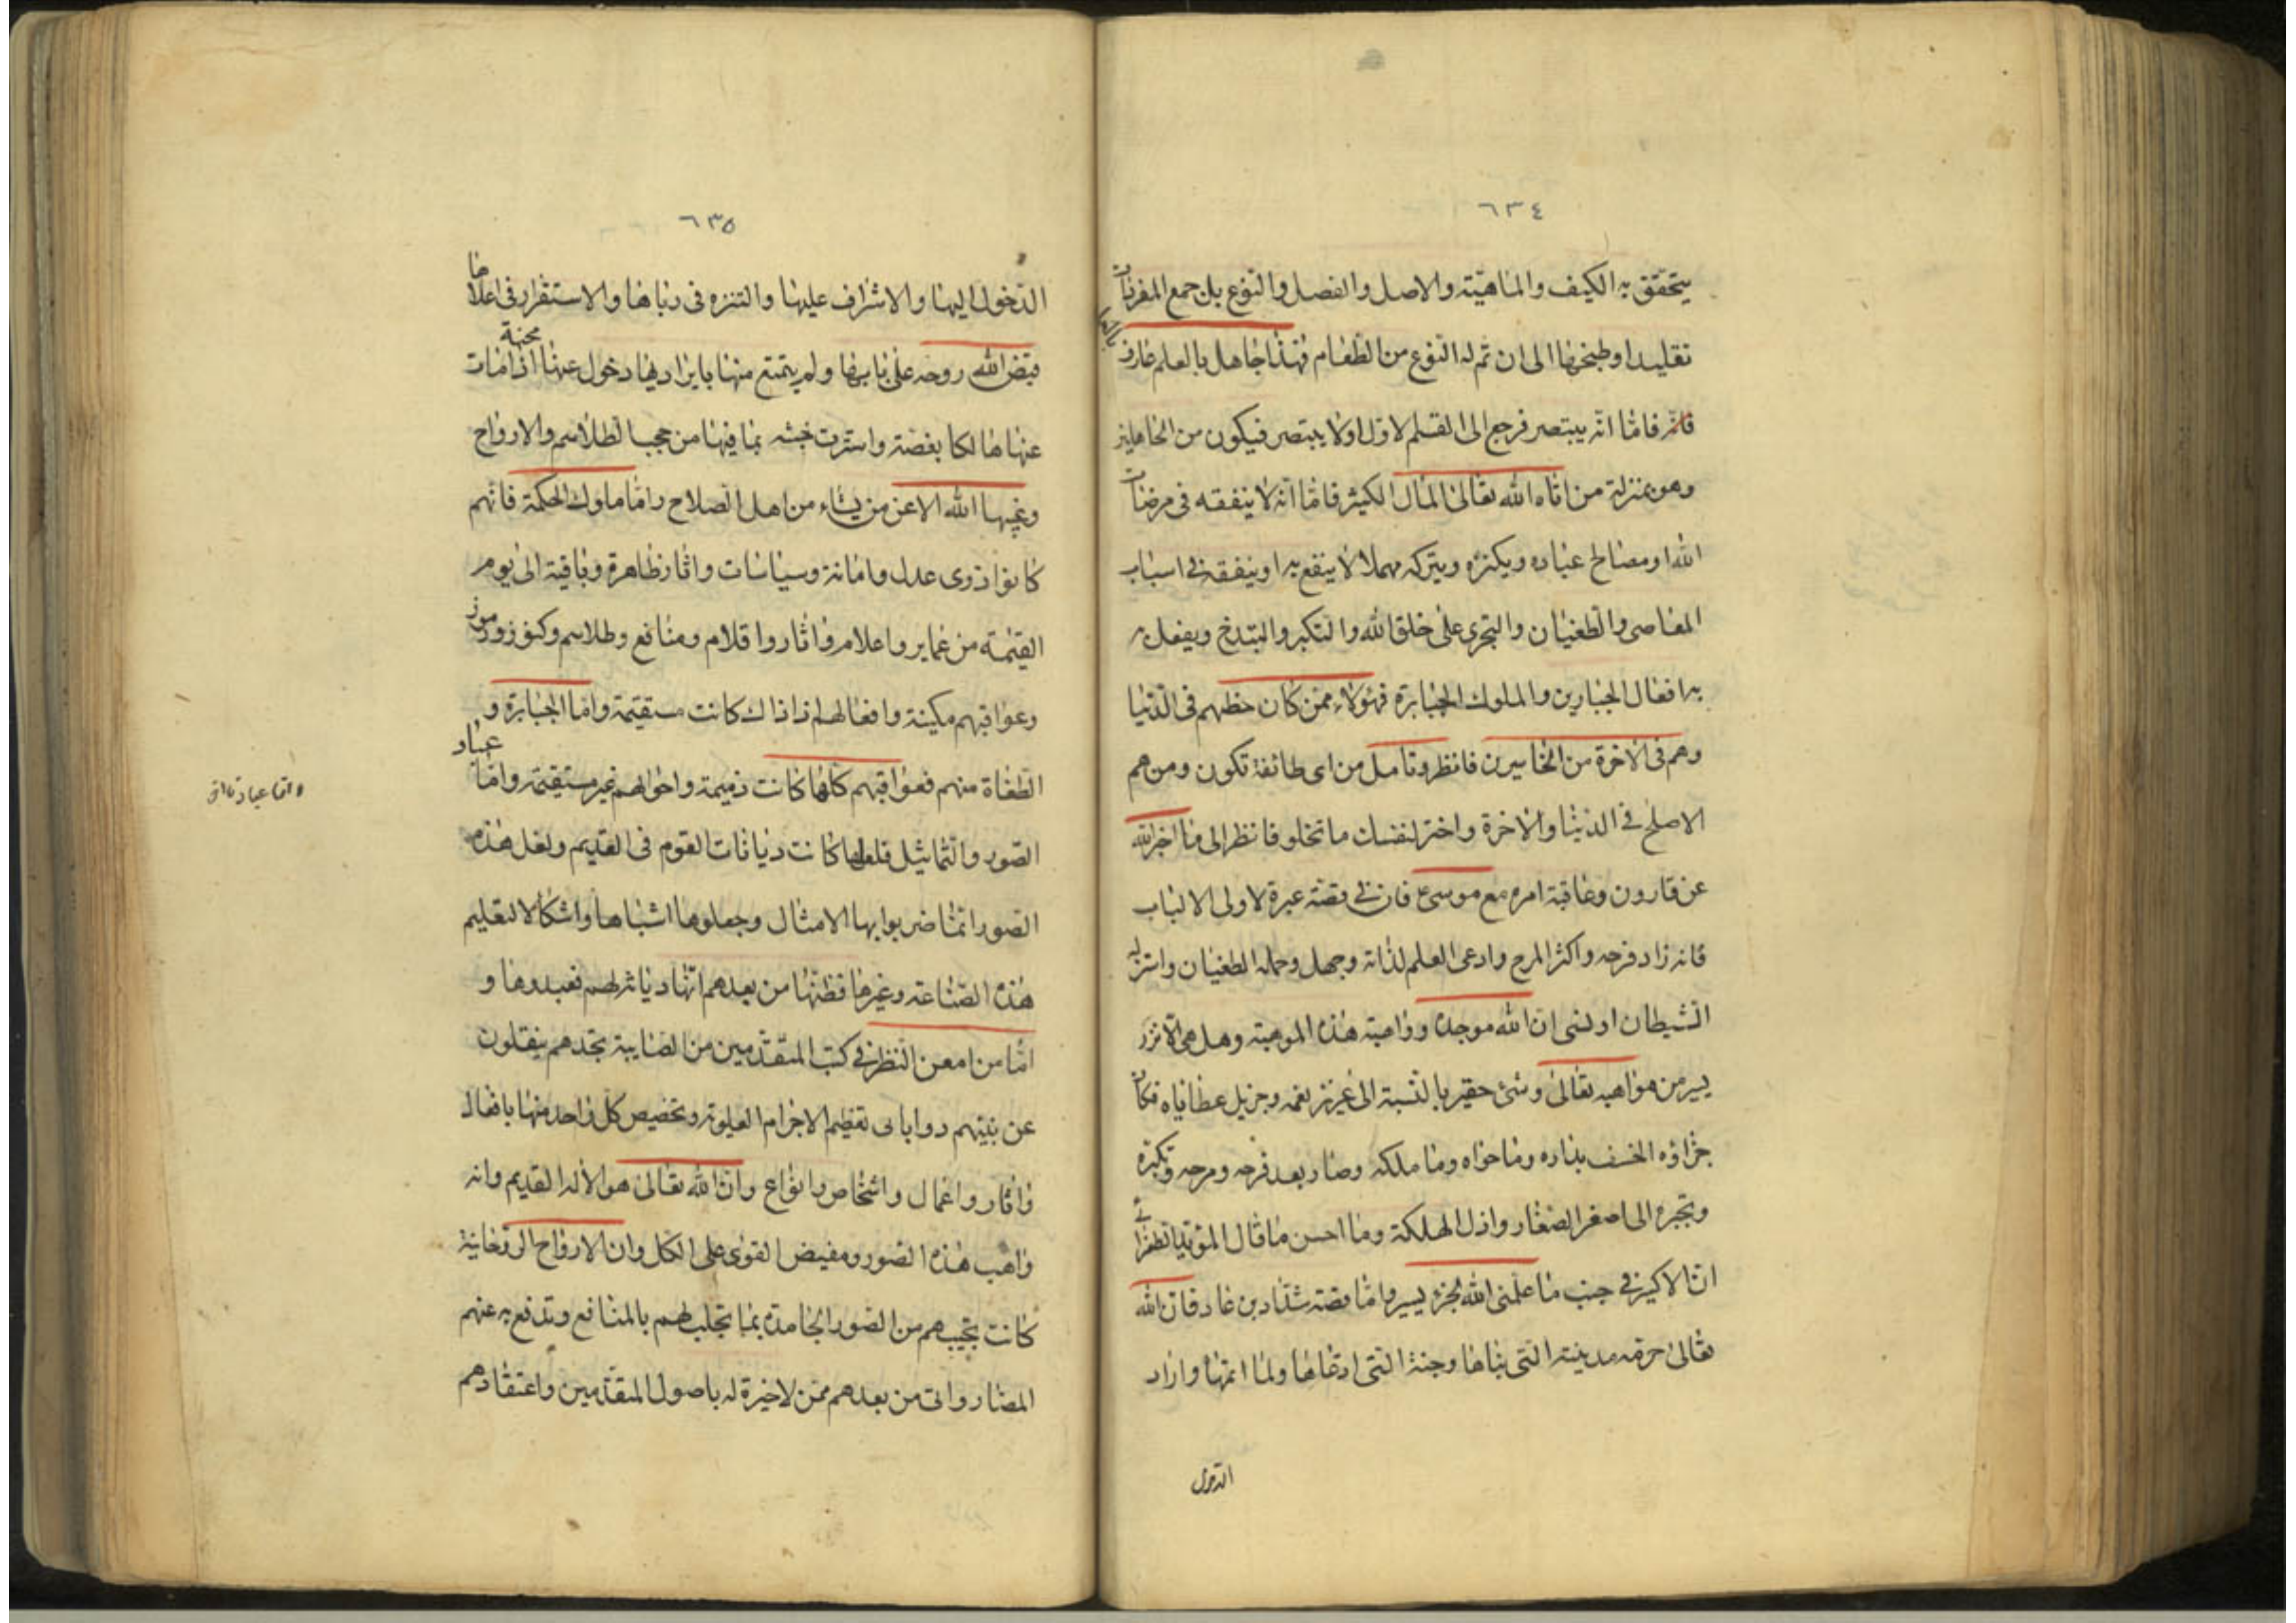 ٦٣٤
يتحقق به الكيف والماهيّة والاصل والفصل والنوع بل جمع المفردات
تقليدا وطبخها الى ان تم له النوع من الطعام فهذا جاهل بالعلم عارف بالعمل
فامّا انّه يبتصر فرجع الى القسم الاوّل اولا يبتصر فيكون من الجاهلين
وهو بمنزلة من اتاه الله تعالى المال الكثير فامّا انّه لا ينفقه فى مرضات
الله ومصالح عباده ويكنزه ويتركه مهملا لا ينفع به او ينفقه فى اسباب
المعاصى والطغيان والتجرى على خلق الله والتكبر والبتدخ ويفعل
به افعال الجبارين والملوك الجبابرة فهؤلاء ممن كان حظهم فى الدّنيا
وهم فى الاخرة من الخاسرين فانظر وتامل من اى طائفة تكون ومن هم
الاصلح فى الدنيا والاخرة واختر لنفسك ما تخلو فانظر الى ما اخبر الله
عن قارون وعاقبة امره مع موسى ع فان فى قصّته عبرة لاولى الالباب
فانه زاد فرحه واكثر المرح وادعى العلم لذاته وجهل وحمله الطغيان واستزله
الشيطان او نسى ان الله موجده وواهبة هذه الموهبة وهل هى الا نزر
يسير من مواهبه تعالى وشئ حقير بالنسبة الى غزيز نعمه وجزيل عطاياه فكان
جزاؤه الخسف بداره وما حواه وما ملكه وصار بعد فرحه ومرحه وتكبره
وتجبره الى اصغر الصغار واذل الهلكة وما احسن ما قال المؤيد الطغرائى
انّ الاكير فى جنب ما علّمنى الله لجزء يسير وامّا قصّة شدّاد بن عاد فان الله
تعالى حرمه مدينته التى بناها وجنة التى ادعاها ولما اتمّها واراد
الدخول
٦٣٥
الدّخول اليها والاشراف عليها والتنزه فى رباها والاستقرار فى اعلاها
قبض الله روحه على بابها ولم يتمتع منها بايراد بها دخول عنها اذا مات محنة
عنها هالكا بغصّة واسترت خبثه بما فيها من حجب الطلاسم والارواح
وغيبها الله الا عن من يشاء من اهل الصلاح وامّا ملوك الحكمة فانّهم
كانوا ذوى عدل وامانة وسياسات واثار ظاهرة وباقية الى يوم
القيمة من عماير واعلام واثار واقلام ومنافع وطلاسم وكنوز ورموز
وعواقبهم مكينة وافعالهم اذ ذاك كانت مستقيمة وامّا الجبابرة و
الطغاة منهم فعواقبهم كلها كانت ذميمة واحوالهم غير مستقيمة وامّا عباد
الصّور والتّماثيل فلعلها كانت ديانات القوم فى القديم ولعل هذه
الصّور انّما ضربوا بها الامثال وجعلوها اشباها واشكالا لتعليم
هذه الصّناعة وغيرها فظنّها من بعدهم انّها ديانة لهم فعبدوها و
امّا من امعن النّظر فى كتب المتقدّمين من الصابية تجدهم ينقلون
عن نبيّهم تعظيم الاجرام العلوية وتخصيص كلّ واحد منها بافعال
واثار واعمال واشخاص وانواع وانّ الله تعالى هو الاله القديم وانه
واهب هذه الصّور ومفيض القوى على الكل وان الارواح الروحانية
كانت تجيبهم من الصّور الجامدة بما تجلب لهم بالمنافع وتدفع به عنهم
المضار واتى من بعدهم ممن لا خيرة له باصول المتقدّمين واعتقادهم
وامّا عباد